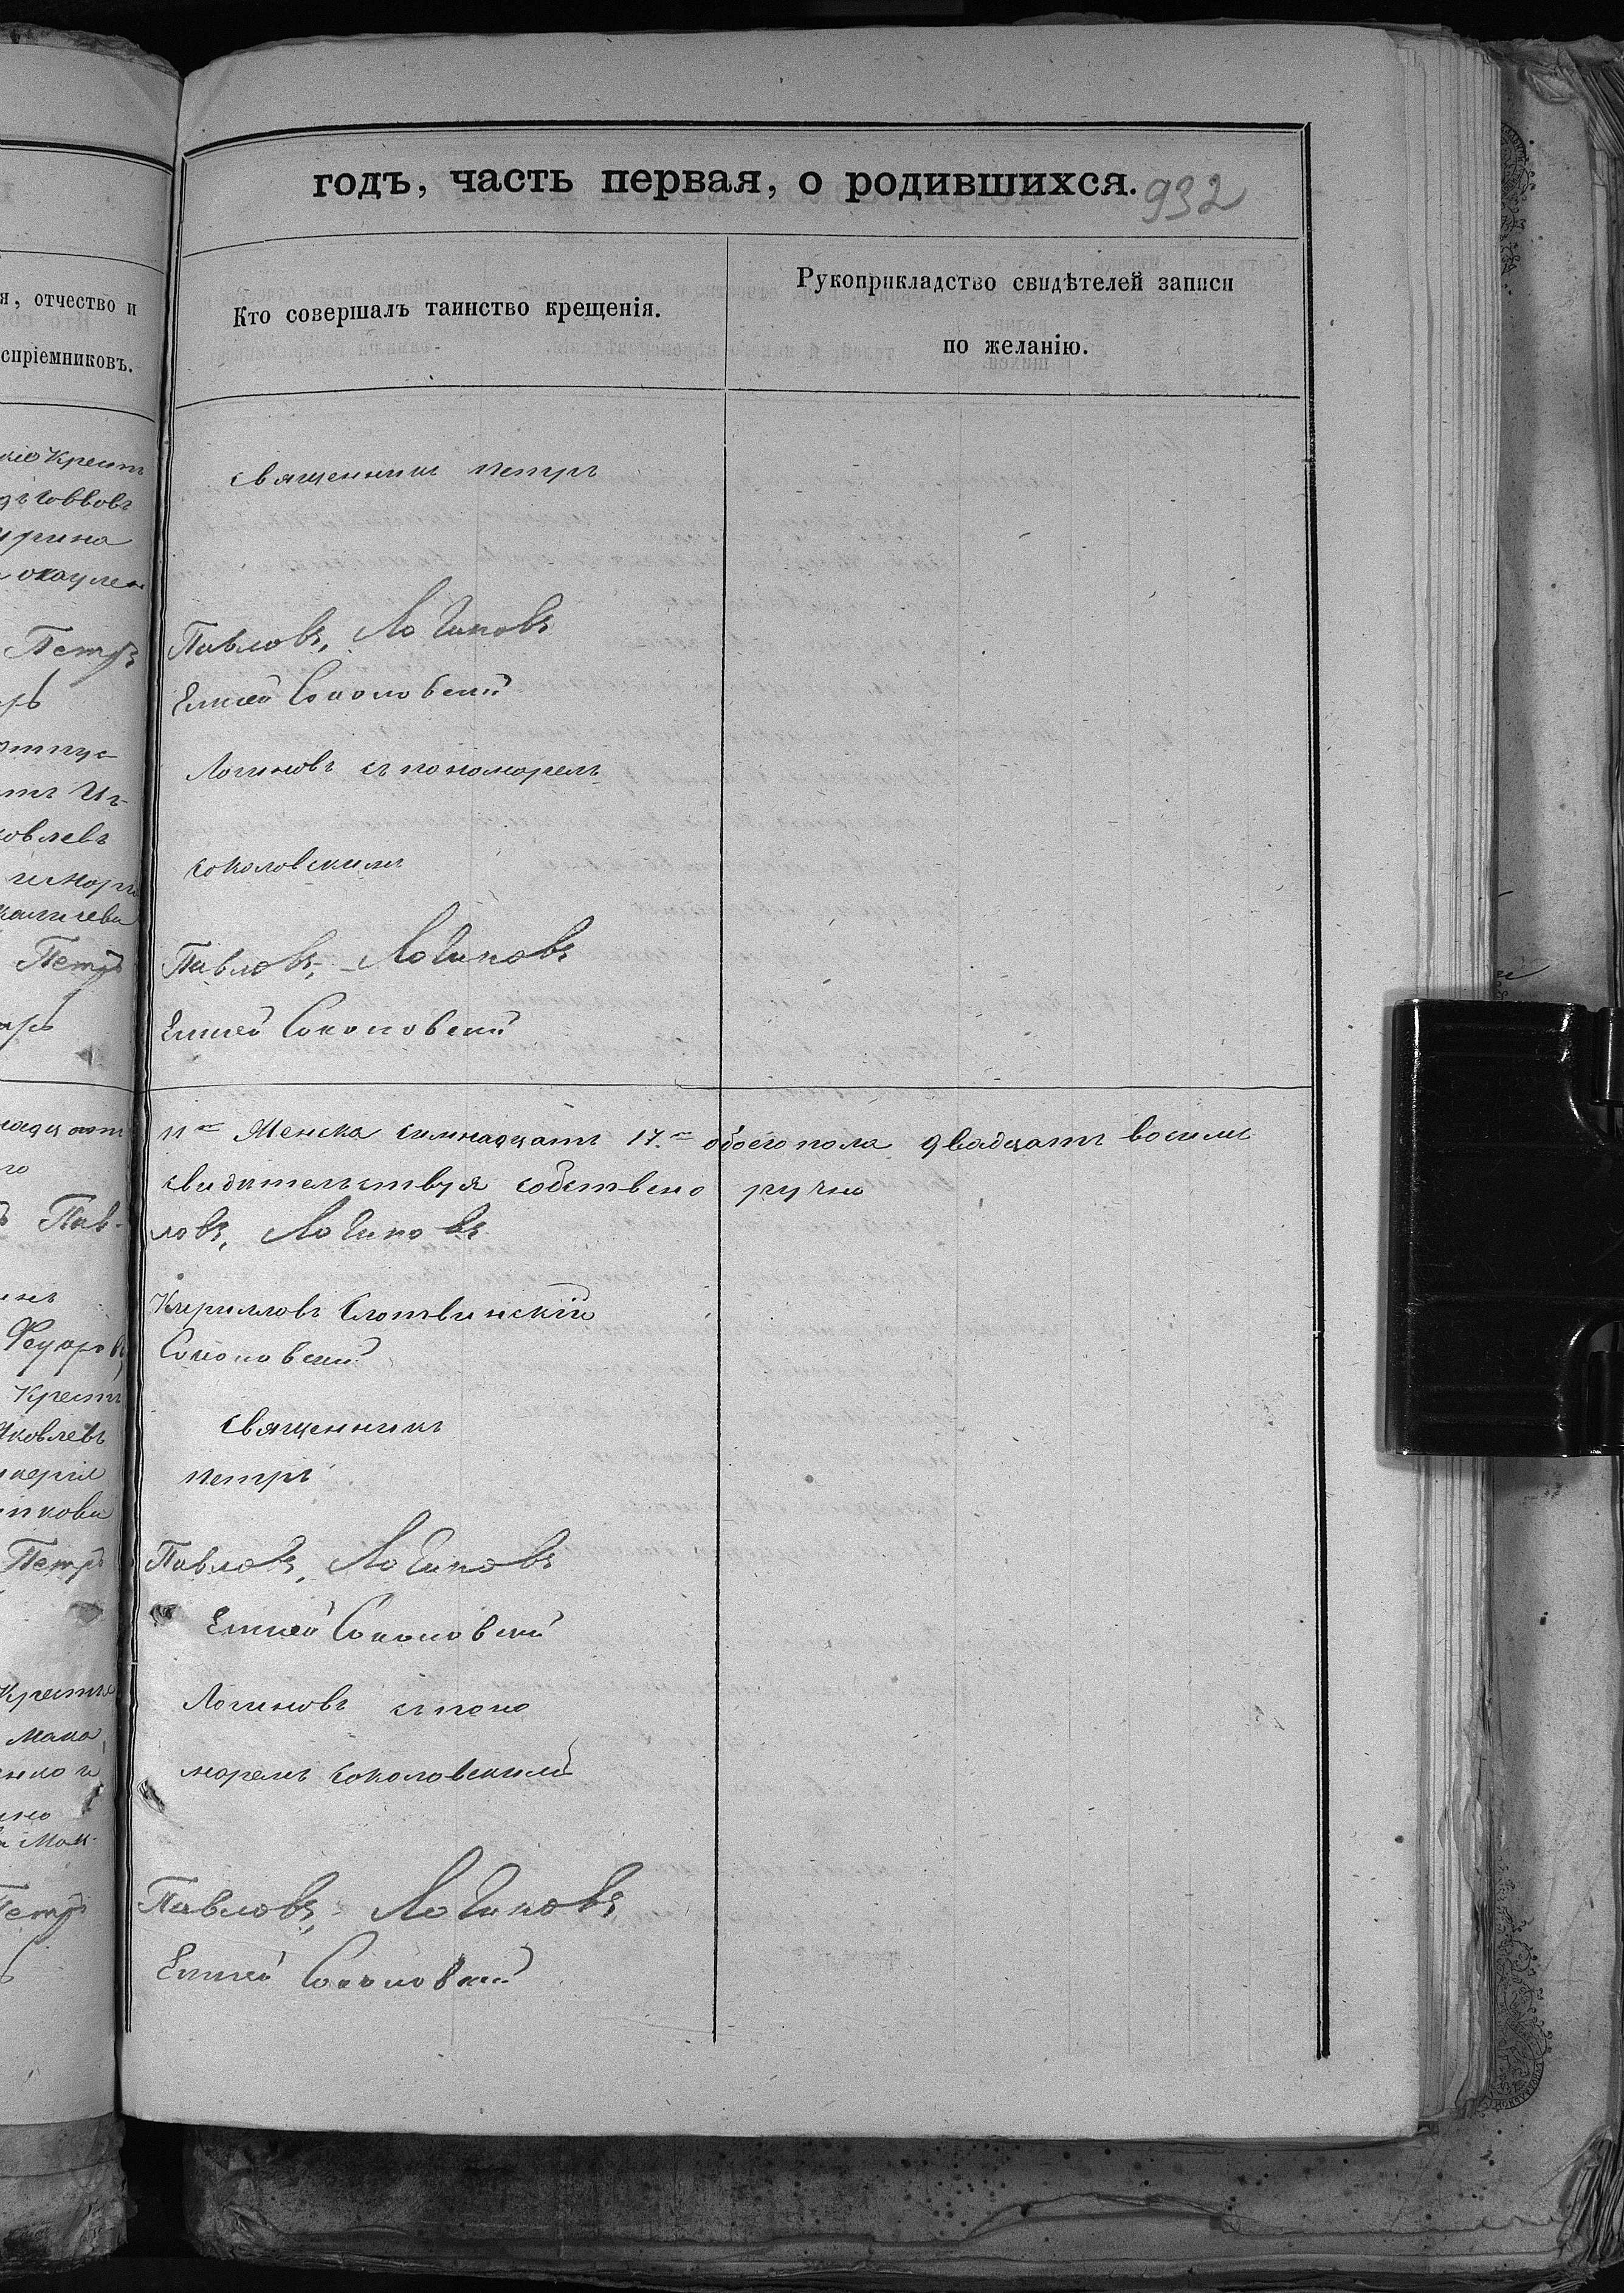 годъ, часть первая, о родившихся. 932
я, отчество и
спріемниковъ.
Кто совершалъ таинство крещенія.
Рукоприкладство свидѣтелей записи
по желанію.
священникъ петръ
Петръ
Павловъ, Логиновъ
Елисей Соколовскій
Логиновъ съ пономоремъ
соколовскимъ
Петръ
Павловъ, Логиновъ
Елисей Соколовскій
11ть Женска симнадцать 17ть обоего пола двадцать восимь
свидѣтельствуя собствено ручно
Пав-
ловъ, Логиновъ
Кирилловъ Слотвинскій
Соколовскій
Крест
Яковлевъ
священникъ
петръ
Петръ
Павловъ, Логиновъ
Елисей Соколовскій
Логиновъ съ поно
моремъ соколовскимъ
Павловъ, Логиновъ
Елисей Соколовскій